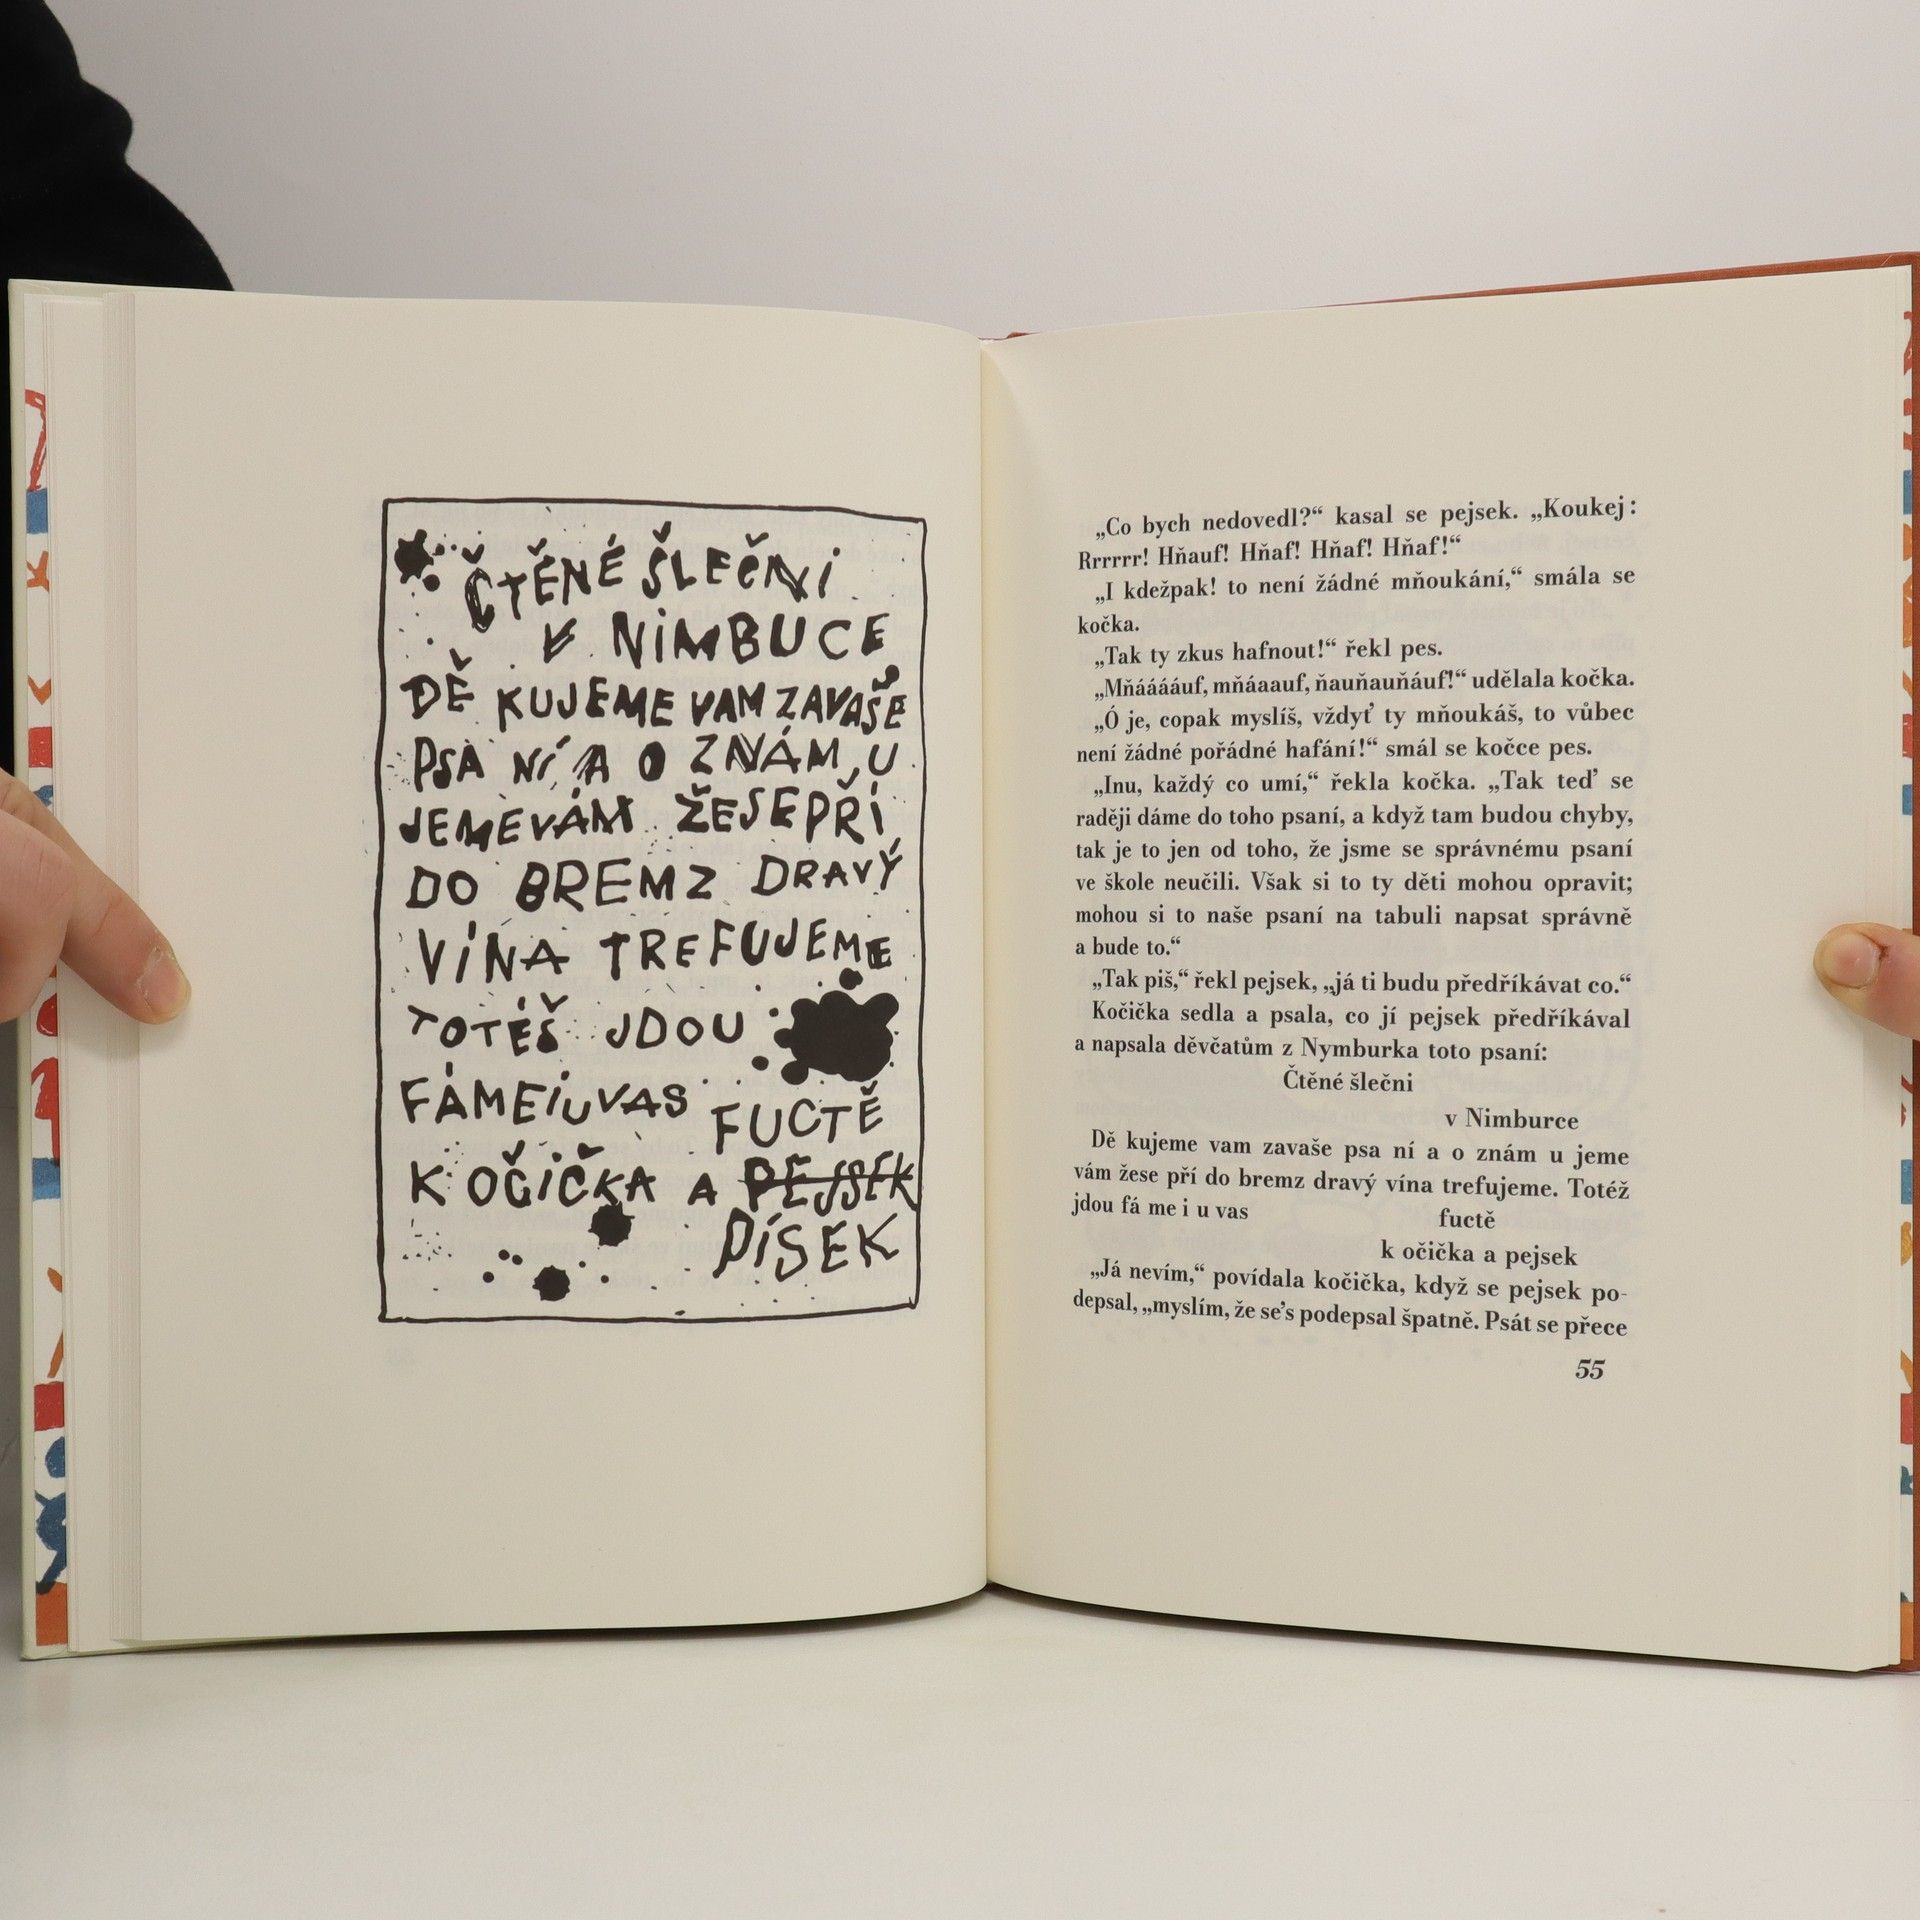 ČTĚNÉ ŠLEČNI
V NIMBUCE
DĚ KUJEME VAM ZAVAŠE
PSA NÍ A O ZNÁM U
JEMEVÁM ŽESEPŘÍ
DO BREMZ DRAVÝ
VÍNA TREFUJEME
TOTÉŠ JDOU
FÁMEIUVAS FUCTĚ
K OČIČKA A PEJSEK
PÍSEK
„Co bych nedovedl?“ kasal se pejsek. „Koukej:
Rrrrrr! Hňauf! Hňaf! Hňaf! Hňaf!“
„I kdežpak! to není žádné mňoukání,“ smála se
kočka.
„Tak ty zkus hafnout!“ řekl pes.
„Mňááááuf, mňáaauf, ňauňauňáuf!“ udělala kočka.
„Ó je, copak myslíš, vždyť ty mňoukáš, to vůbec
není žádné pořádné hafání!“ smál se kočce pes.
„Inu, každý co umí,“ řekla kočka. „Tak teď se
raději dáme do toho psaní, a když tam budou chyby,
tak je to jen od toho, že jsme se správnému psaní
ve škole neučili. Však si to ty děti mohou opravit;
mohou si to naše psaní na tabuli napsat správně
a bude to.“
„Tak piš,“ řekl pejsek, „já ti budu předříkávat co.“
Kočička sedla a psala, co jí pejsek předříkával
a napsala děvčatům z Nymburka toto psaní:
Čtěné šlečni
v Nimburce
Dě kujeme vam zavaše psa ní a o znám u jeme
vám žese pří do bremz dravý vína trefujeme. Totéž
jdou fá me i u vas fuctě
k očička a pejsek
„Já nevím,“ povídala kočička, když se pejsek po-
depsal, „myslím, že se’s podepsal špatně. Psát se přece
55